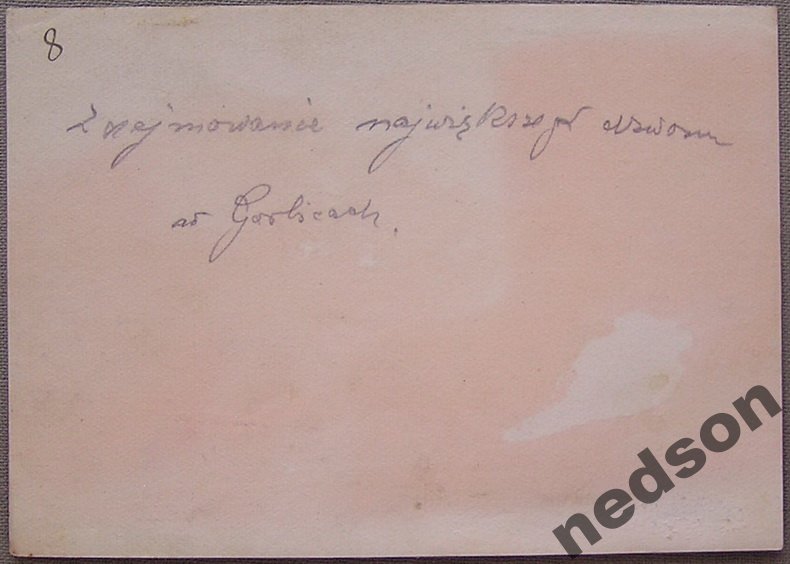 8
Zdejmowanie największego dzwonu
w Gorlicach.
nedson